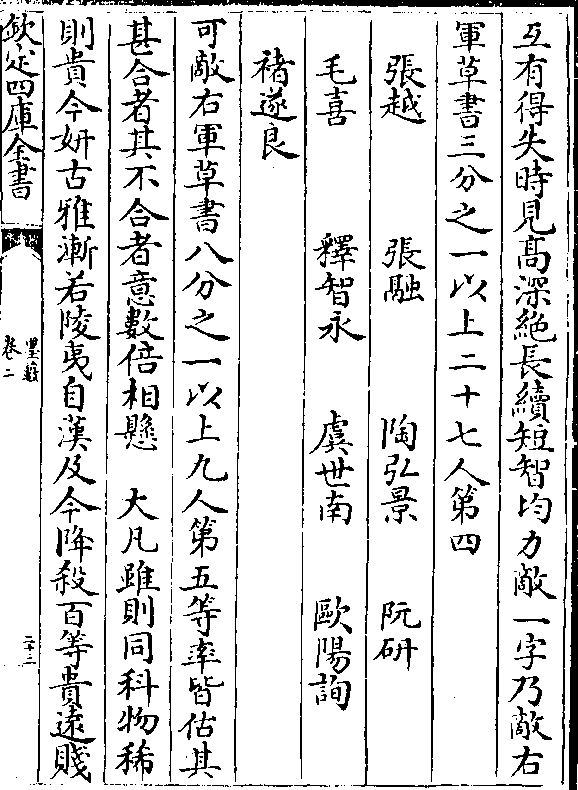 互有得失時見髙深絶長續短智均力敵一字乃敵右
軍草書三分之一以上二十七人第四
張越 張融 陶弘景 阮研
毛喜 釋智永 虞世南 歐陽詢
褚遂良
可敵右軍草書八分之一以上九人第五等率皆估其
甚合者其不合者意數倍相懸 大凡雖則同科物稀
則貴今妍古雅漸若陵夷自漢及今降殺百等貴遠賤
欽定四庫全書
墨藪
卷二
二十二